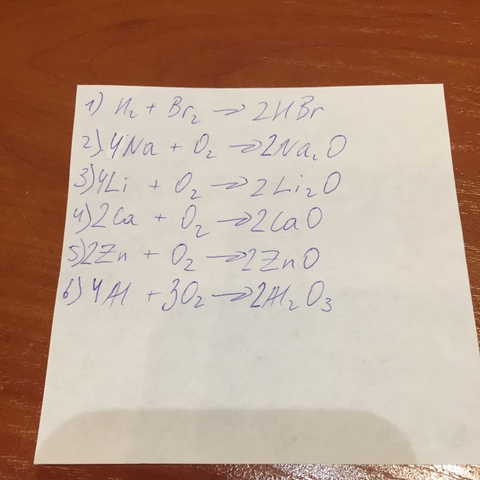 1) H₂ + Br₂ → 2HBr
2) 4Na + O₂ → 2Na₂O
3) 4Li + O₂ → 2Li₂O
4) 2Ca + O₂ → 2CaO
5) 2Zn + O₂ → 2ZnO
6) 4Al + 3O₂ → 2Al₂O₃